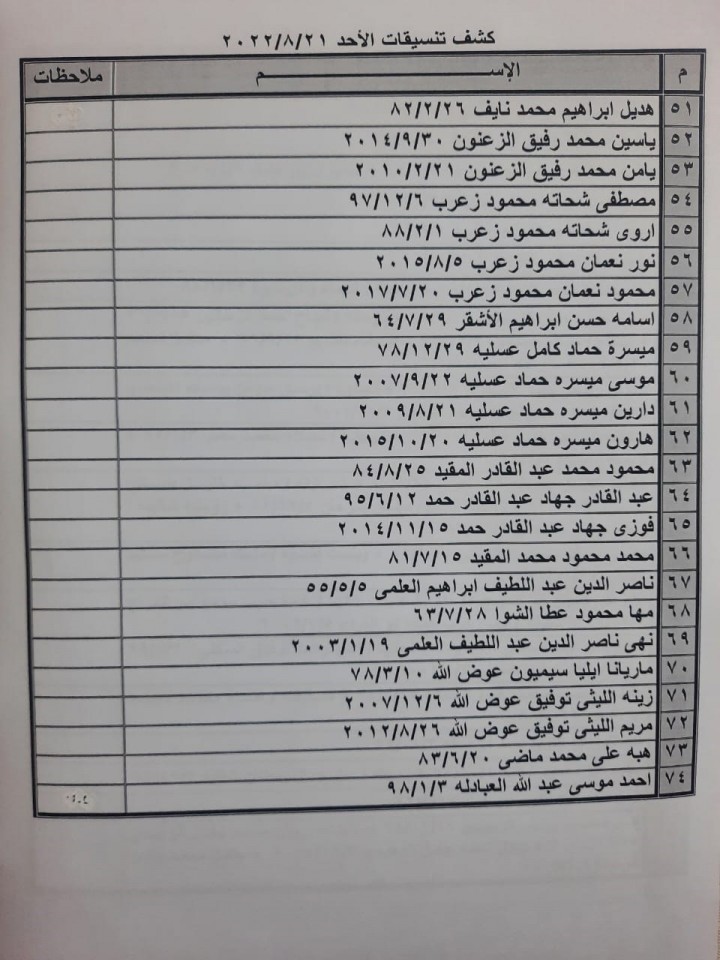 كشف تنسيقات الأحد ٢٠٢٢/٨/٢١
م الإســـــم ملاحظات
٥١ هديل ابراهيم محمد نايف ٨٢/٢/٢٦
٥٢ ياسين محمد رفيق الزعنون ٢٠١٤/٩/٣٠
٥٣ يامن محمد رفيق الزعنون ٢٠١٠/٢/٢١
٥٤ مصطفى شحاته محمود زعرب ٩٧/١٢/٦
٥٥ اروى شحاته محمود زعرب ٨٨/٢/١
٥٦ نور نعمان محمود زعرب ٢٠١٥/٨/٥
٥٧ محمود نعمان محمود زعرب ٢٠١٧/٧/٢٠
٥٨ اسامه حسن ابراهيم الأشقر ٦٤/٧/٢٩
٥٩ ميسرة حماد كامل عسليه ٧٨/١٢/٢٩
٦٠ موسى ميسره حماد عسليه ٢٠٠٧/٩/٢٢
٦١ دارين ميسره حماد عسليه ٢٠٠٩/٨/٢١
٦٢ هارون ميسره حماد عسليه ٢٠١٥/١٠/٢٠
٦٣ محمود محمد عبد القادر المقيد ٨٤/٨/٢٥
٦٤ عبد القادر جهاد عبد القادر حمد ٩٥/٦/١٢
٦٥ فوزى جهاد عبد القادر حمد ٢٠١٤/١١/١٥
٦٦ محمد محمود محمد المقيد ٨١/٧/١٥
٦٧ ناصر الدين عبد اللطيف ابراهيم العلمى ٥٥/٥/٥
٦٨ مها محمود عطا الشوا ٦٣/٧/٢٨
٦٩ نهى ناصر الدين عبد اللطيف العلمى ٢٠٠٣/١/١٩
٧٠ ماريانا ايليا سيميون عوض الله ٧٨/٣/١٠
٧١ زينه الليثى توفيق عوض الله ٢٠٠٧/١٢/٦
٧٢ مريم الليثى توفيق عوض الله ٢٠١٢/٨/٢٦
٧٣ هبه على محمد ماضى ٨٣/٦/٢٠
٧٤ احمد موسى عبد الله العبادله ٩٨/١/٣